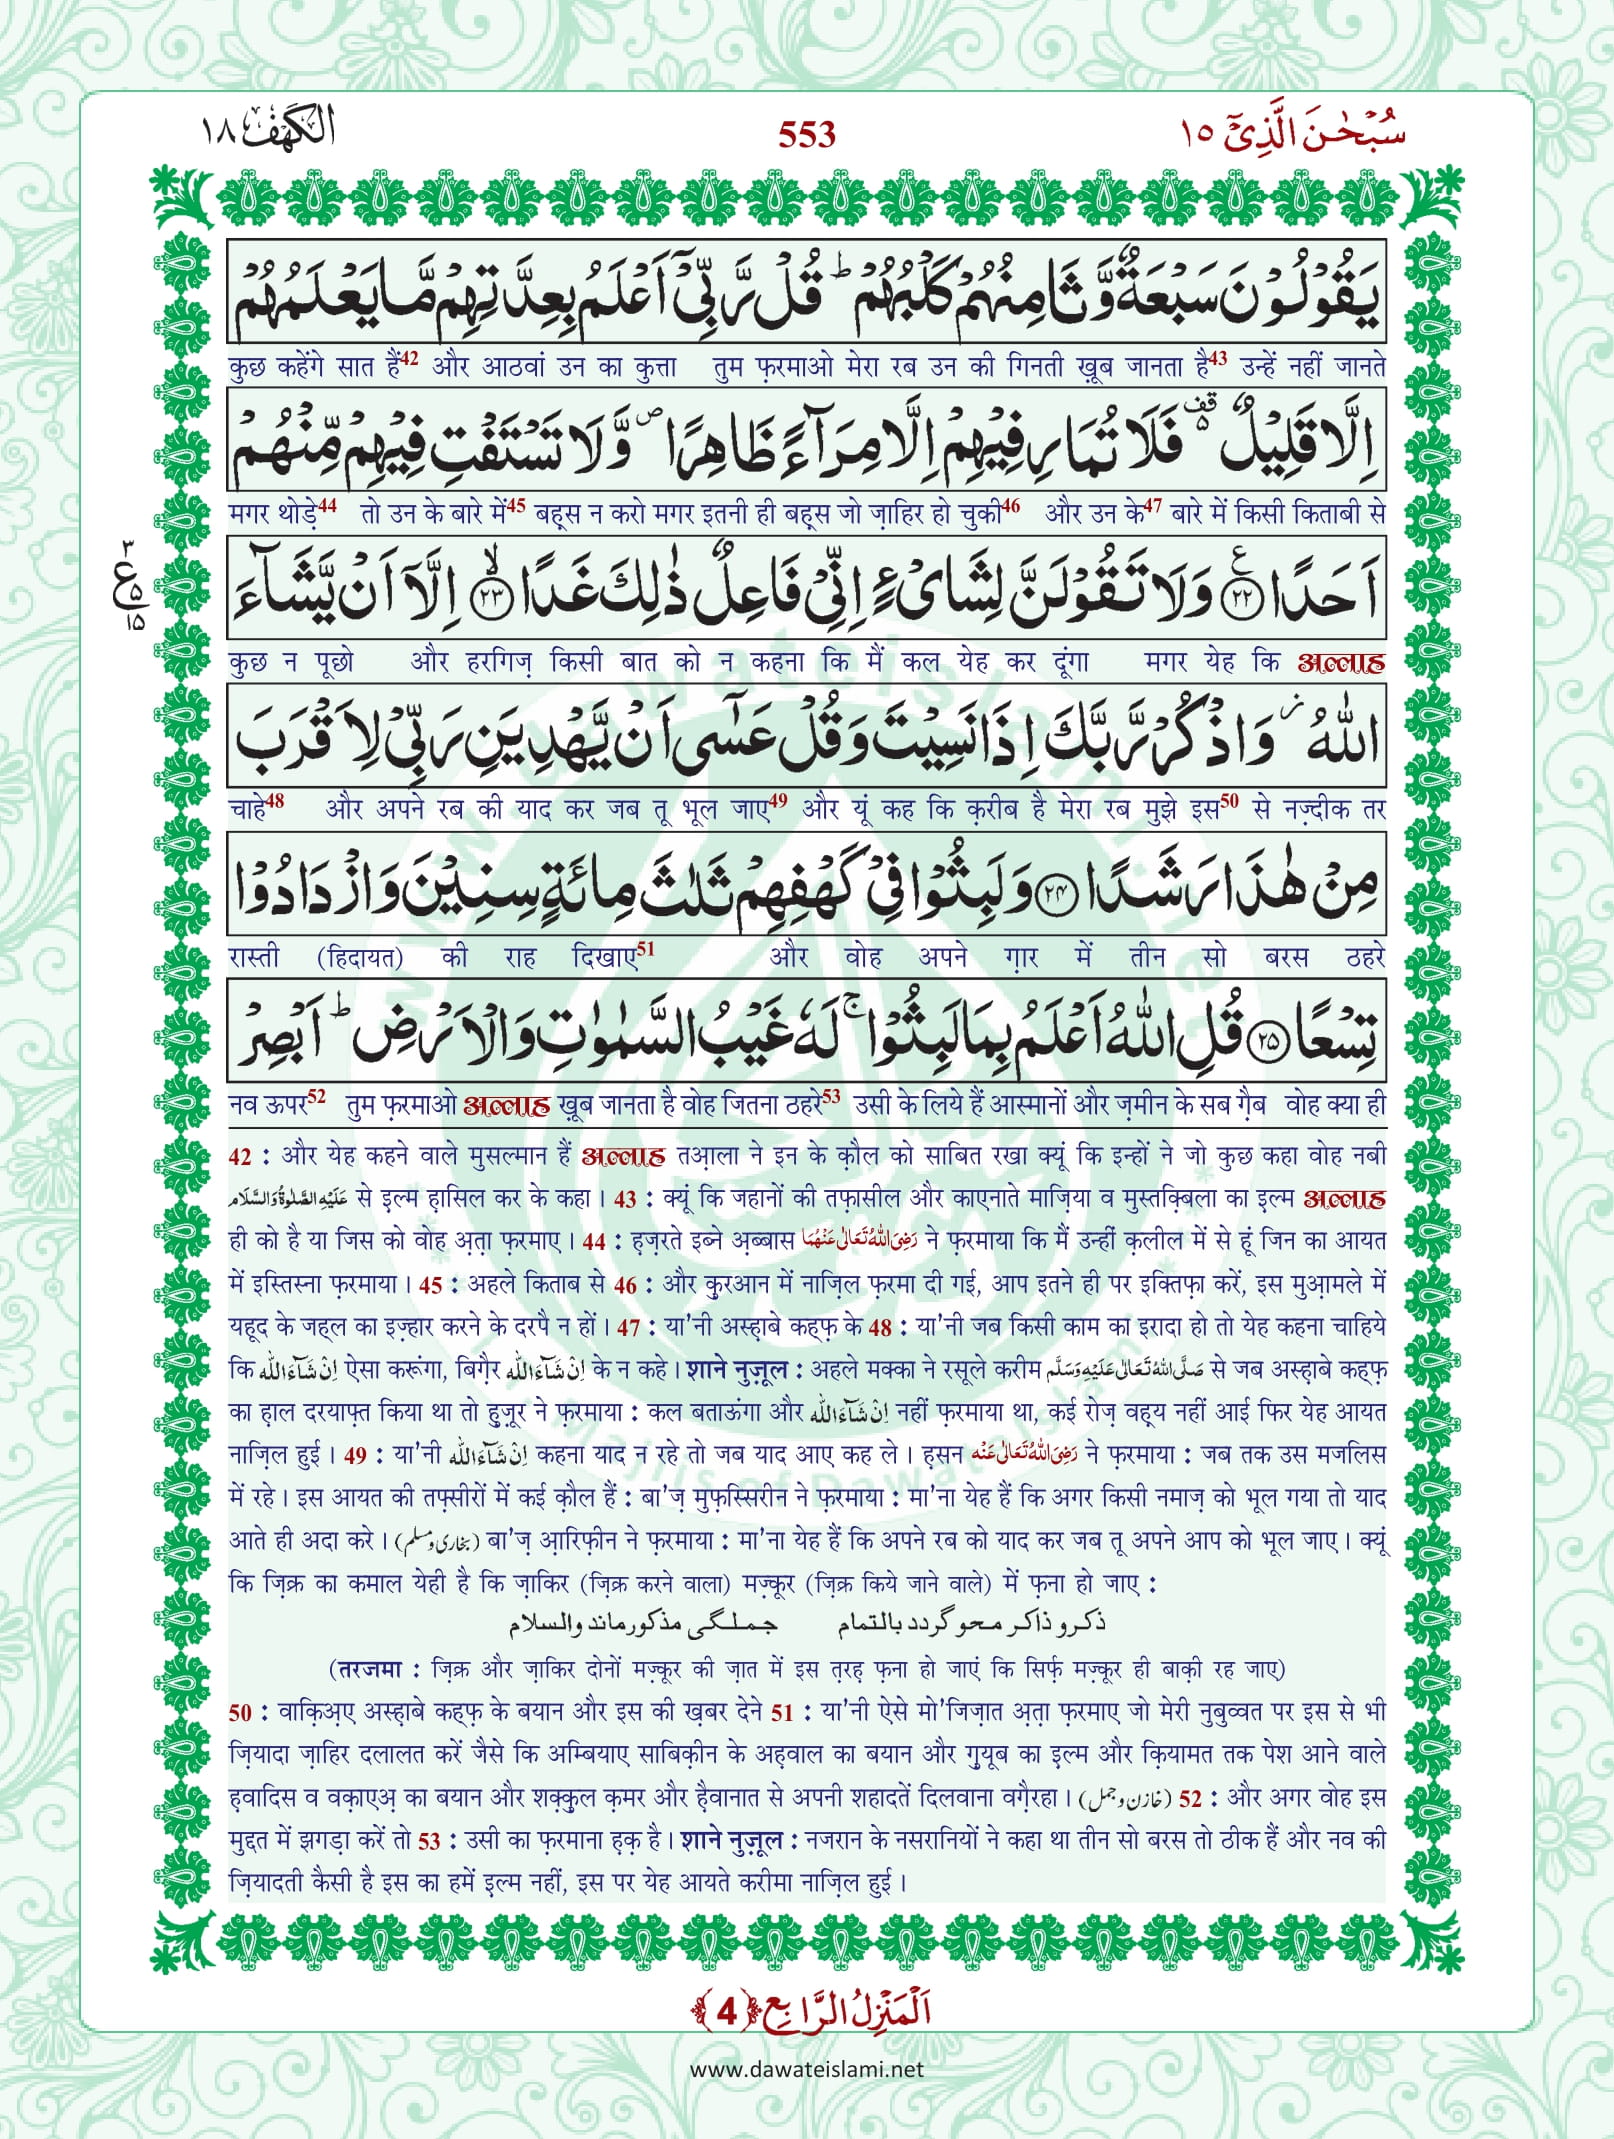 سُبْحٰنَ الَّذِیْۤ ١٥
553
الْكَهْف ١٨
یَقُوْلُوْنَ سَبْعَةٌ وَّ ثَامِنُهُمْ كَلْبُهُمْؕ قُلْ رَّبِّیْۤ اَعْلَمُ بِعِدَّتِهِمْ مَّا یَعْلَمُهُمْ
कुछ कहेंगे सात हैं42 और आठवां उन का कुत्ता तुम फ़रमाओ मेरा रब उन की गिनती ख़ूब जानता है43 उन्हें नहीं जानते
اِلَّا قَلِیْلٌ ﲕ فَلَا تُمَارِ فِیْهِمْ اِلَّا مِرَآءً ظَاهِرًا۪ وَّ لَا تَسْتَفْتِ فِیْهِمْ مِّنْهُمْ
मगर थोड़े44 तो उन के बारे में45 बह़्स न करो मगर इतनी ही बह़्स जो ज़ाहिर हो चुकी46 और उन के47 बारे में किसी किताबी से
اَحَدًا۠ ﴿۲۲﴾ وَ لَا تَقُوْلَنَّ لِشَایْءٍ اِنِّیْ فَاعِلٌ ذٰلِكَ غَدًاۙ ﴿۲۳﴾ اِلَّاۤ اَنْ یَّشَآءَ
٣
ع
۵
١۵
कुछ न पूछो और हरगिज़ किसी बात को न कहना कि मैं कल येह कर दूंगा मगर येह कि अल्लाह
اللّٰهُ٘ وَ اذْكُرْ رَّبَّكَ اِذَا نَسِیْتَ وَ قُلْ عَسٰۤی اَنْ یَّهْدِیَنِ رَبِّیْ لِاَقْرَبَ
चाहे48 और अपने रब की याद कर जब तू भूल जाए49 और यूं कह कि क़रीब है मेरा रब मुझे इस50 से नज़्दीक तर
مِنْ هٰذَا رَشَدًا ﴿۲۴﴾ وَ لَبِثُوْا فِیْ كَهْفِهِمْ ثَلٰثَ مِائَةٍ سِنِیْنَ وَ ازْدَادُوْا
रास्ती (हिदायत) की राह दिखाए51 और वोह अपने ग़ार में तीन सो बरस ठहरे
تِسْعًا ﴿۲۵﴾ قُلِ اللّٰهُ اَعْلَمُ بِمَا لَبِثُوْاۚ لَهٗ غَیْبُ السَّمٰوٰتِ وَ الْاَرْضِؕ اَبْصِرْ
नव ऊपर52 तुम फ़रमाओ अल्लाह ख़ूब जानता है वोह जितना ठहरे53 उसी के लिये हैं आस्मानों और ज़मीन के सब ग़ैब वोह क्या ही
42 : और येह कहने वाले मुसल्मान हैं अल्लाह तआ़ला ने इन के क़ौल को साबित रखा क्यूं कि इन्हों ने जो कुछ कहा वोह नबी
عَلَیْهِ الصَّلٰوةُ وَالسَّلَام से इल्म ह़ासिल कर के कहा। 43 : क्यूं कि जहानों की तफ़ासील और काएनाते माज़िया व मुस्तक़्बिला का इ़ल्म अल्लाह
ही को है या जिस को वोह अ़त़ा फ़रमाए। 44 : ह़ज़रते इब्ने अ़ब्बास رَضِیَ اللّٰهُ تَعَالٰی عَنْهُمَا ने फ़रमाया कि मैं उन्हीं क़लील में से हूं जिन का आयत
में इस्तिस्ना फ़रमाया। 45 : अहले किताब से 46 : और क़ुरआन में नाज़िल फ़रमा दी गई, आप इतने ही पर इक्तिफ़ा करें, इस मुआ़मले में
यहूद के जह्ल का इज़्हार करने के दरपै न हों। 47 : या'नी अस्ह़ाबे कह्फ़ के 48 : या'नी जब किसी काम का इरादा हो तो येह कहना चाहिये
कि اِنْ شَآءَ اللّٰه ऐसा करूंगा, बिग़ैर اِنْ شَآءَ اللّٰه के न कहे। शाने नुज़ूल : अहले मक्का ने रसूले करीम صَلَّی اللّٰهُ تَعَالٰی عَلَیْهِ وَسَلَّم से जब अस्ह़ाबे कह्फ़
का ह़ाल दरयाफ़्त किया था तो हु़ज़ूर ने फ़रमाया : कल बताऊंगा और اِنْ شَآءَ اللّٰه नहीं फ़रमाया था, कई रोज़ वह़्य नहीं आई फिर येह आयत
नाज़िल हुई। 49 : या'नी اِنْ شَآءَ اللّٰه कहना याद न रहे तो जब याद आए कह ले। ह़सन رَضِیَ اللّٰهُ تَعَالٰی عَنْه ने फ़रमाया : जब तक उस मजलिस
में रहे। इस आयत की तफ़्सीरों में कई क़ौल हैं : बा'ज़ मुफ़स्सिरीन ने फ़रमाया : मा'ना येह हैं कि अगर किसी नमाज़ को भूल गया तो याद
आते ही अदा करे। (بخاری و مسلم) बा'ज़ आ़रिफ़ीन ने फ़रमाया : मा'ना येह हैं कि अपने रब को याद कर जब तू अपने आप को भूल जाए। क्यूं
कि ज़िक्र का कमाल येही है कि ज़ाकिर (ज़िक्र करने वाला) मज़्कूर (ज़िक्र किये जाने वाले) में फ़ना हो जाए :
ذكر و ذاكر محو گردد بالتمام جملگی مذكور ماند والسلام
(तरजमा : ज़िक्र और ज़ाकिर दोनों मज़्कूर की ज़ात में इस त़रह़ फ़ना हो जाएं कि सिर्फ़ मज़्कूर ही बाक़ी रह जाए)
50 : वाक़िअ़ए अस्ह़ाबे कह्फ़ के बयान और इस की ख़बर देने 51 : या'नी ऐसे मो'जिज़ात अ़त़ा फ़रमाए जो मेरी नुबुव्वत पर इस से भी
ज़ियादा ज़ाहिर दलालत करें जैसे कि अम्बियाए साबिक़ीन के अह़वाल का बयान और ग़ुयूब का इ़ल्म और क़ियामत तक पेश आने वाले
ह़वादिस व वक़ाएअ़ का बयान और शक़्क़ुल क़मर और ह़ैवानात से अपनी शहादतें दिलवाना वग़ैरहा। (خازن و جمل) 52 : और अगर वोह इस
मुद्दत में झगड़ा करें तो 53 : उसी का फ़रमाना ह़क़ है। शाने नुज़ूल : नजरान के नसरानियों ने कहा था तीन सो बरस तो ठीक हैं और नव की
ज़ियादती कैसी है इस का हमें इ़ल्म नहीं, इस पर येह आयते करीमा नाज़िल हुई।
اَلْمَنْزِلُ الرَّابِع ﴿4﴾
www.dawateislami.net